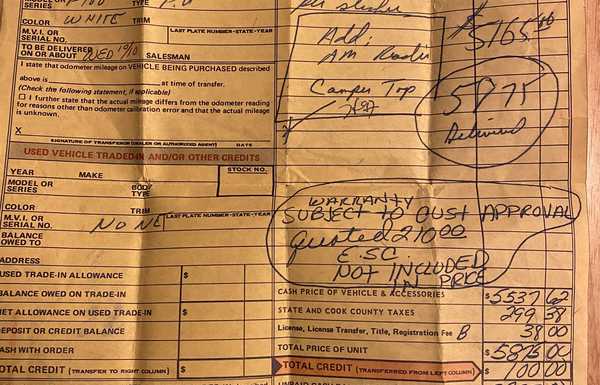 SERIES F-100 TYPE P.U
COLOR WHITE TRIM
M.V.I. OR SERIAL NO. LAST PLATE NUMBER-STATE-YEAR
TO BE DELIVERED ON OR ABOUT WED 1970 SALESMAN
I state that odometer mileage on VEHICLE BEING PURCHASED described
above is at time of transfer.
(Check the following statement, if applicable)
☐ I further state that the actual mileage differs from the odometer reading
for reasons other than odometer calibration error and that the actual mileage
is unknown.
X
SIGNATURE OF TRANSFEROR (DEALER OR AUTHORIZED AGENT) DATE
per sticker
$5165.00
Add:
AM Radio
Camper Top
5875
Delivered
USED VEHICLE TRADED-IN AND/OR OTHER CREDITS
STOCK NO.
YEAR MAKE
MODEL OR SERIES BODY TYPE
COLOR TRIM
M.V.I. OR SERIAL NO. NONE LAST PLATE NUMBER-STATE-YEAR
BALANCE OWED TO
ADDRESS
WARRANTY
SUBJECT TO CUST APPROVAL
Quoted 210.00
E.S.C.
NOT INCLUDED
IN PRICE
USED TRADE-IN ALLOWANCE $ $
BALANCE OWED ON TRADE-IN
NET ALLOWANCE ON USED TRADE-IN
DEPOSIT OR CREDIT BALANCE
CASH WITH ORDER
TOTAL CREDIT (TRANSFER TO RIGHT COLUMN) $ $
CASH PRICE OF VEHICLE & ACCESSORIES $ 5537 62
STATE AND COOK COUNTY TAXES 299.38
License, License Transfer, Title, Registration Fee B 38 00
TOTAL PRICE OF UNIT $ 5875 00
TOTAL CREDIT (TRANSFERRED FROM LEFT COLUMN) $ 100 00